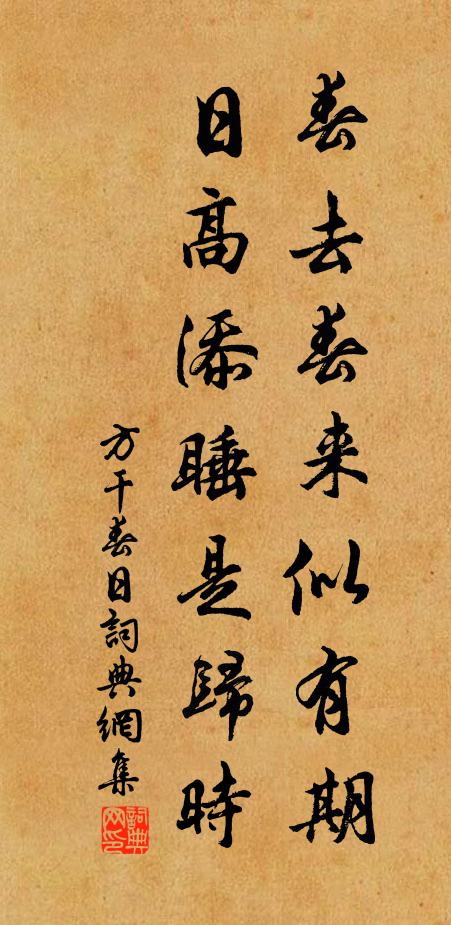 春去春来似有期
日高添睡是歸時
方干春日詞典網集
詞典網印